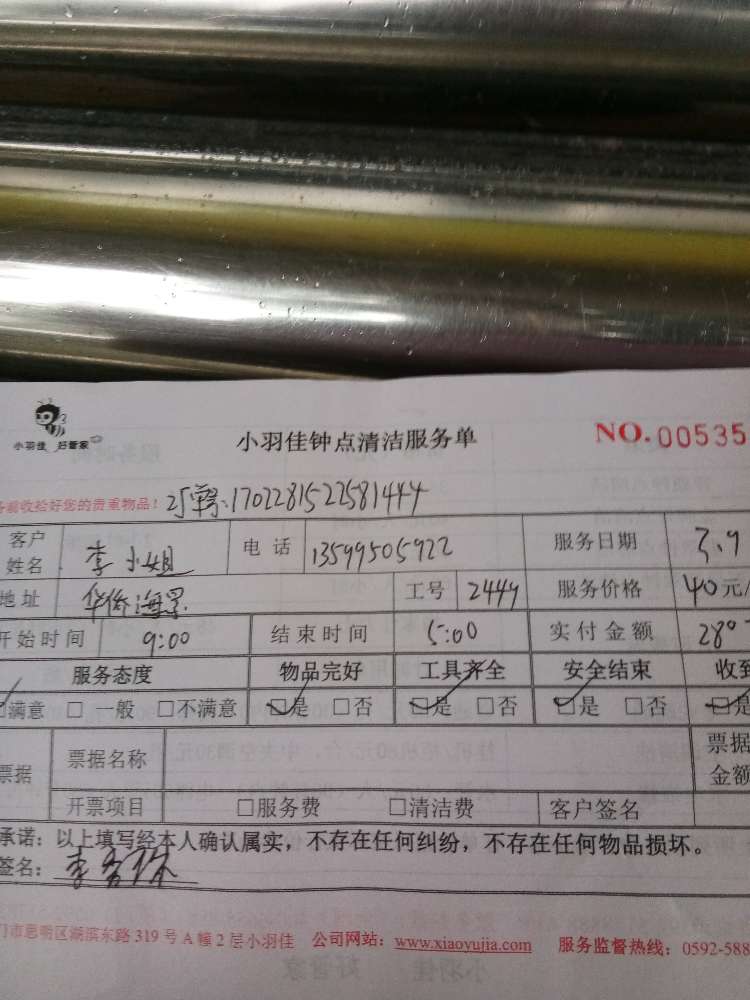 小羽佳 好管家
小羽佳钟点清洁服务单
NO.00535
前收拾好您的贵重物品! 订单号:1702281522581444
客户姓名 李小姐 电话 13599505922 服务日期 3.9
地址 华侨海景 工号 2449 服务价格 40元/
开始时间 9:00 结束时间 5:00 实付金额 280
服务态度 物品完好 工具齐全 安全结束 收到
□满意 □一般 □不满意 □是 □否 □是 □否 □是 □否 □是
票据 票据名称 票据金额
开票项目 □服务费 □清洁费 客户签名
承诺:以上填写经本人确认属实,不存在任何纠纷,不存在任何物品损坏。
签名: 李
门市思明区湖滨东路 319 号 A 幢 2 层小羽佳 公司网站:www.xiaoyujia.com 服务监督热线:0592-588